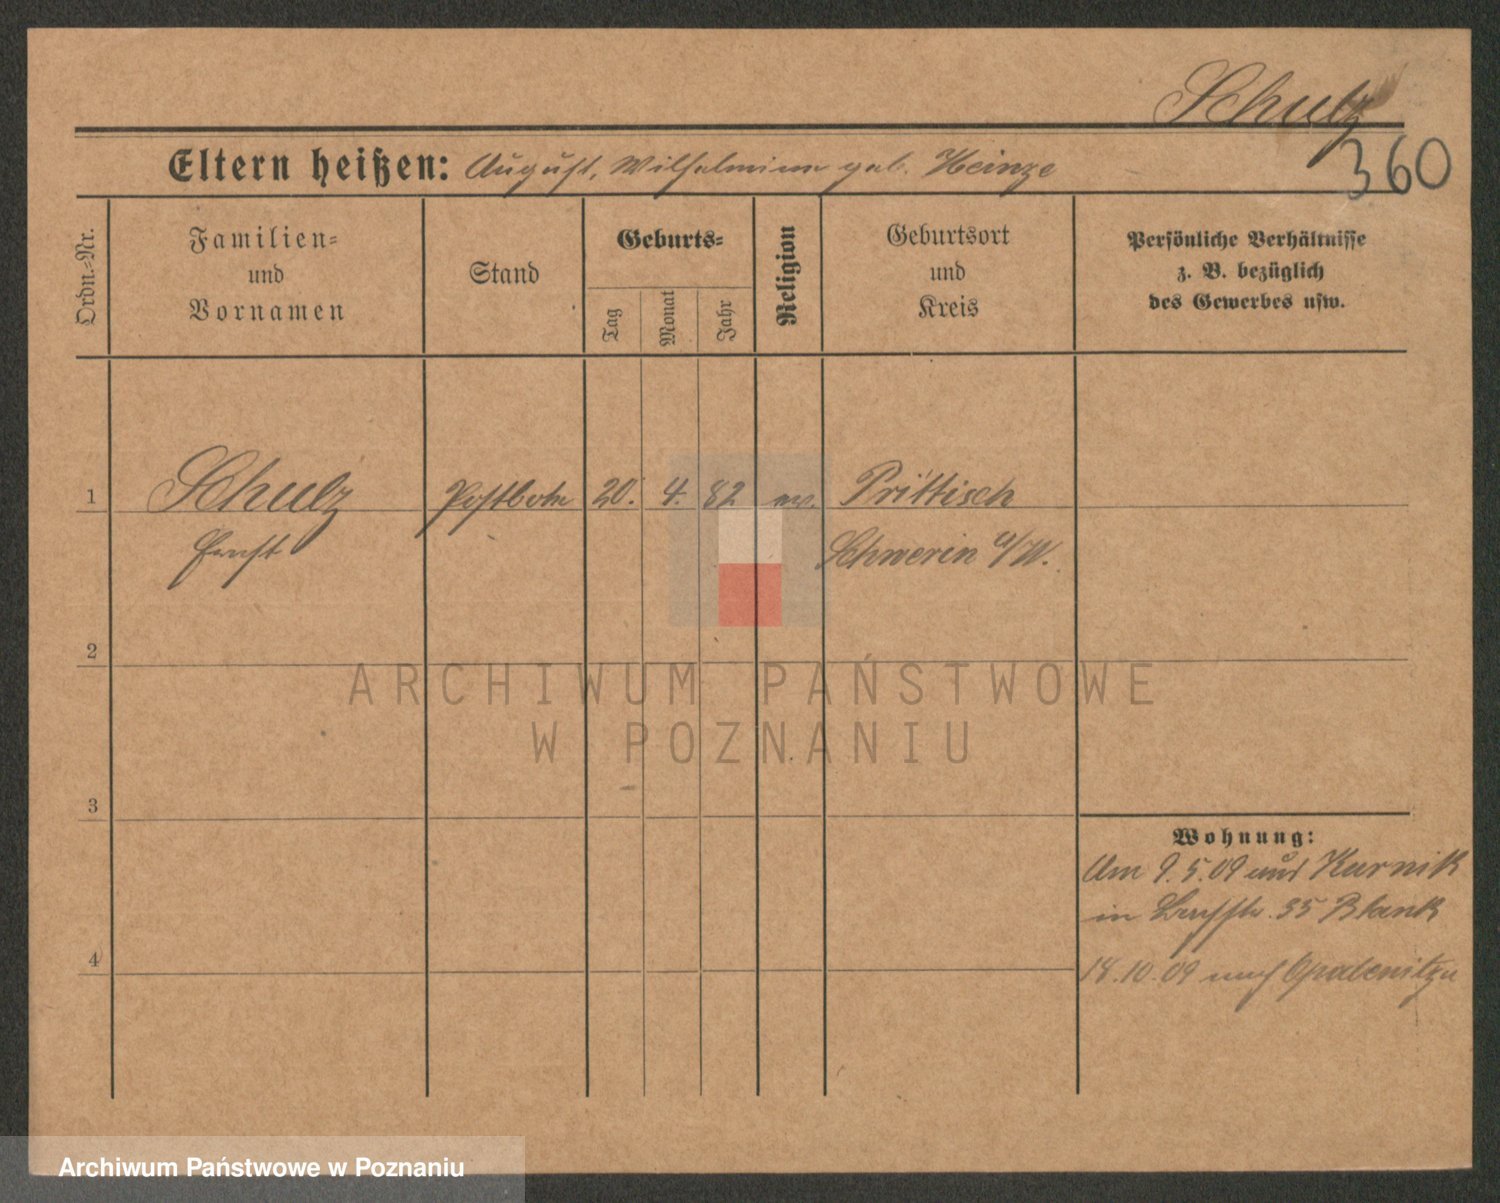 Schulz
360
Eltern heißen: August, Wilhelmine geb. Heinze
Ordn.-Nr.
Familien-
und
Vornamen
Stand
Geburts-
Tag
Monat
Jahr
Religion
Geburtsort
und
Kreis
Persönliche Verhältnisse
z. B. bezüglich
des Gewerbes usw.
1
Schulz
Ernst
Postbote
20.
4.
82
ev.
Prittisch
Schwerin a/W.
2
3
4
Wohnung:
Am 9.5.09 aus Kurnik
in 35 Blank
18.10.09 nach Opalenitza
ARCHIWUM PAŃSTWOWE
W POZNANIU
Archiwum Państwowe w Poznaniu